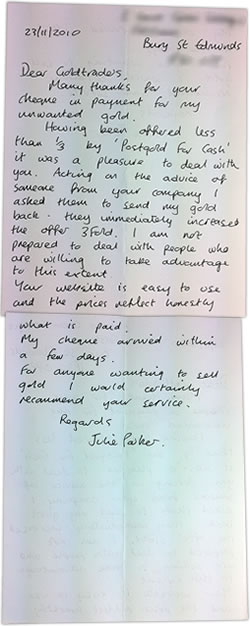 23/11/2010
Bury St Edmunds
Dear Goldtraders,
Many thanks for your
cheque in payment for my
unwanted gold.
Having been offered less
than 1/3 by 'Postgold For Cash'
it was a pleasure to deal with
you. Acting on the advice of
someone from your company I
asked them to send my gold
back. they immediately increased
the offer 3 Fold. I am not
prepared to deal with people who
are willing to take advantage
to this extent.
Your website is easy to use
and the prices reflect honestly
what is paid.
My cheque arrived within
a few days.
For anyone wanting to sell
gold I would certainly
recommend your service.
Regards
Julie Parker.